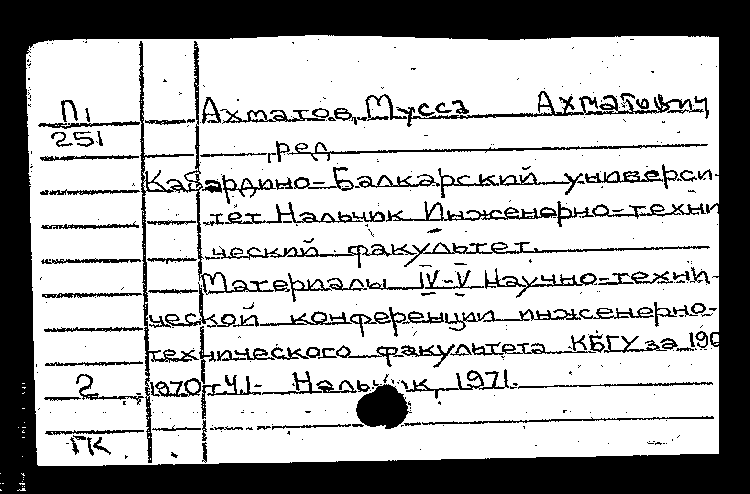 П1 Ахматов, Мусса Ахматович
251 , ред
Кабардино-Балкарский универси-
тет Нальчик Инженерно-техни
ческий факультет.
Материалы IV-V Научно-техни-
ческой конференции инженерно-
технического факультета КБГУ за 190
2 1970 г. Ч.1- Нальчик, 1971.
ГК